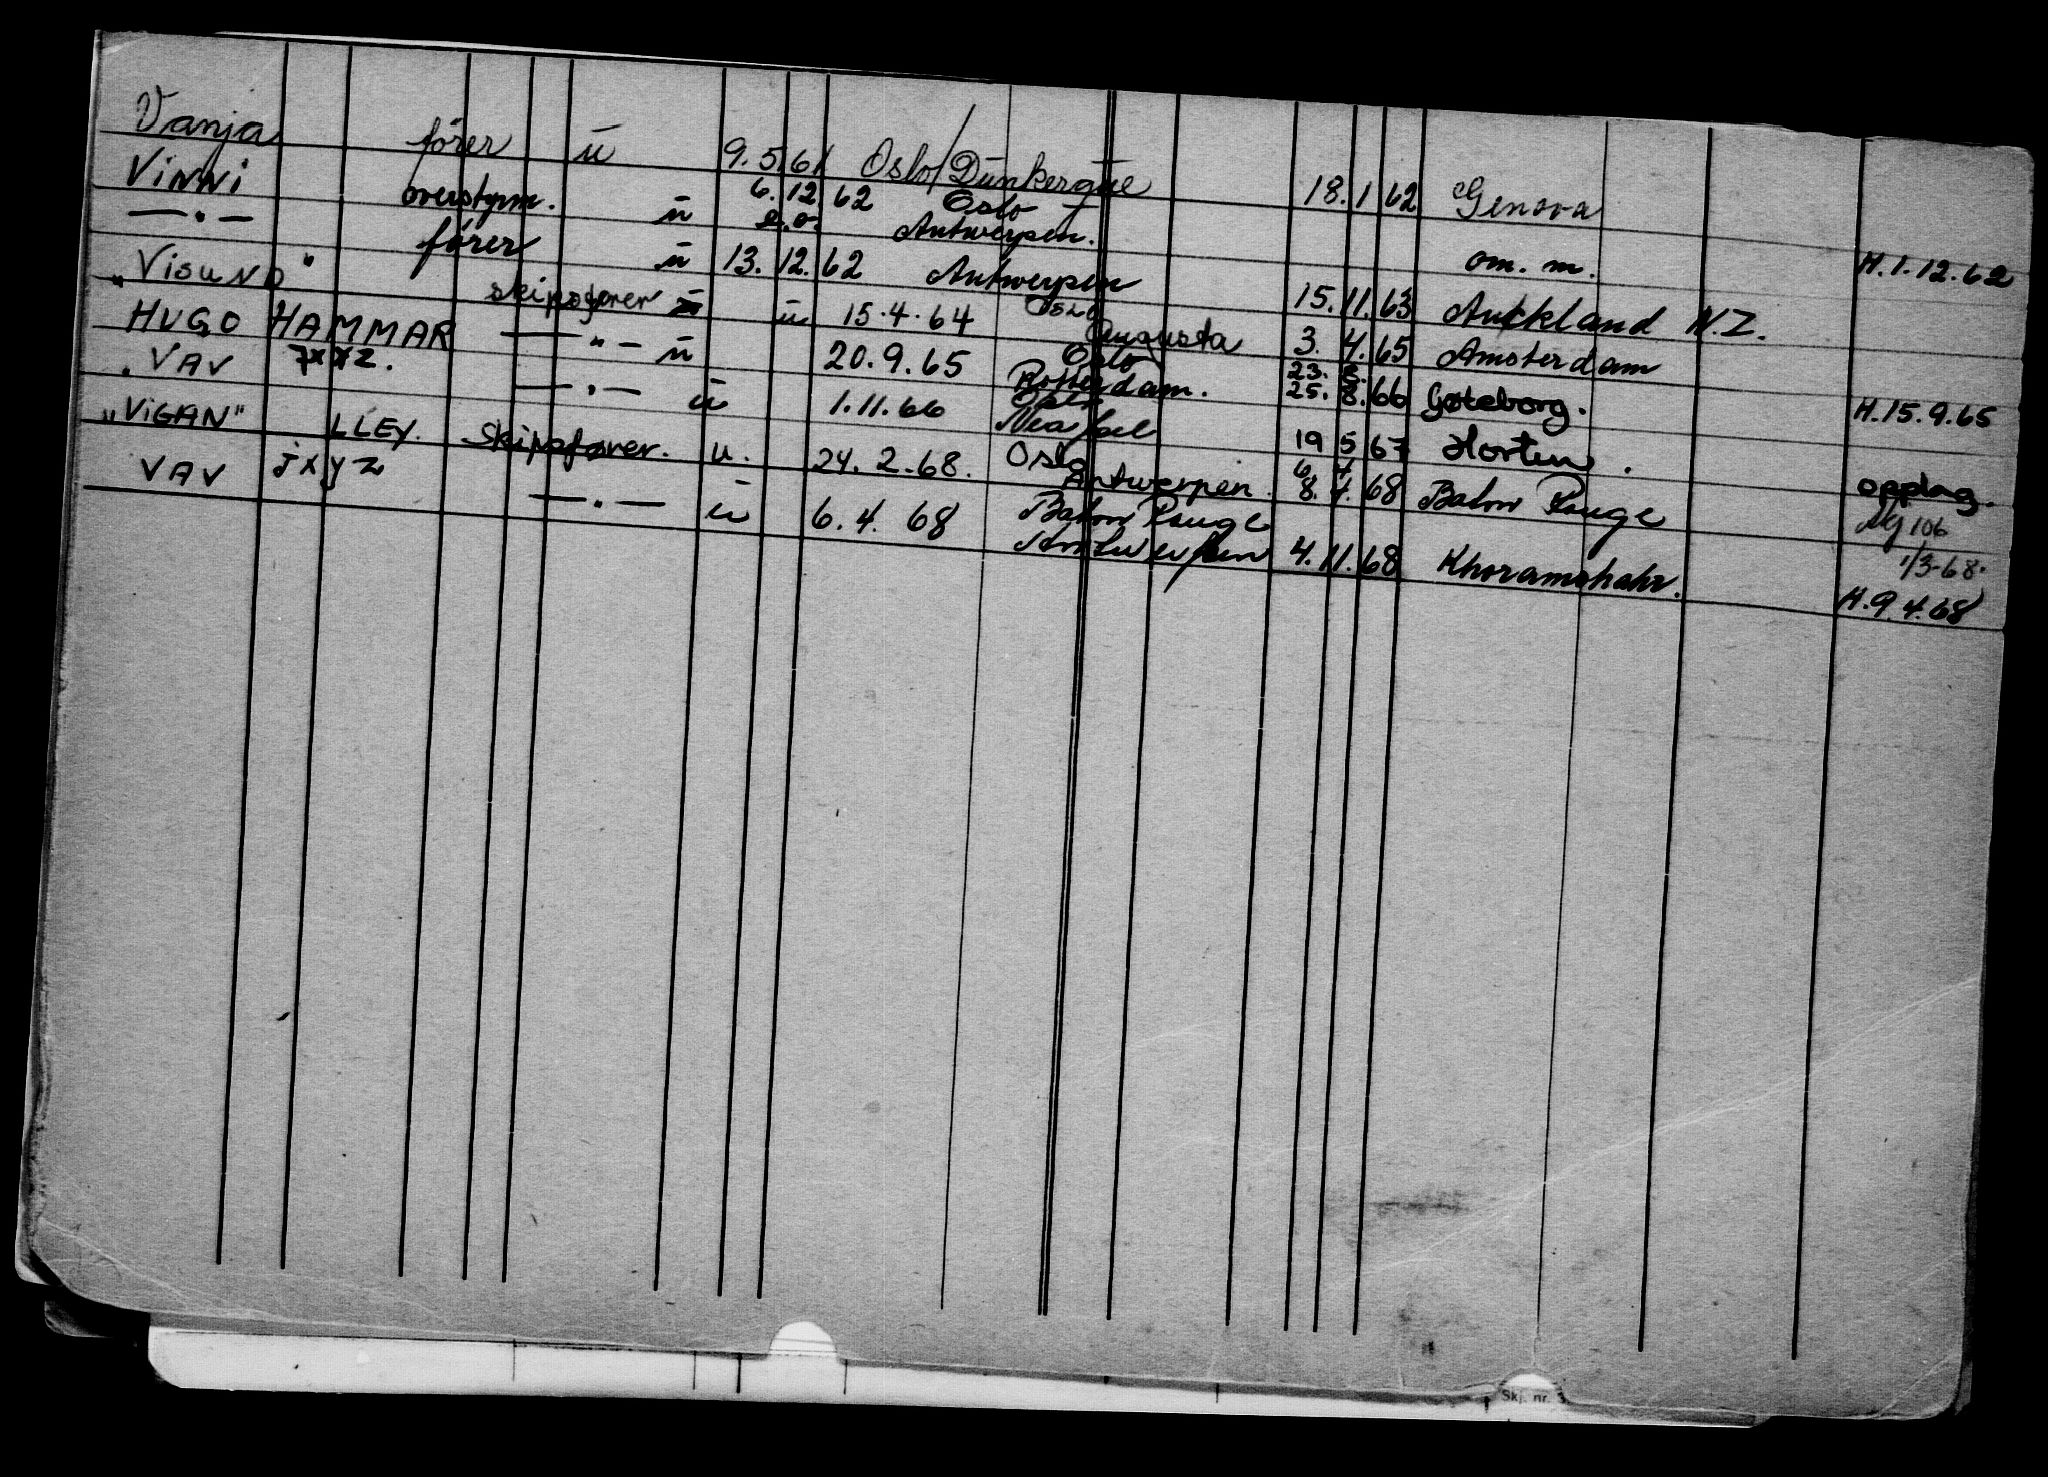 Vanja fører u 9. 5. 61 Oslo/Dunkerque 18. 1 62 Genova
ViNNi overstyrm. u 6. 12. 62 Oslo Antwerpen. om. m. H. 1. 12. 62
— " — fører u 13. 12. 62 Antwerpen 15. 11. 63 Auckland N.Z.
"ViSUND" skipsfører u 15. 4. 64 Oslo Augusta 3. 4. 65 Amsterdam
HUGO HAMMAR — " — u 20. 9. 65 Oslo Rotterdam. 23. 8. 25. 8. 66 Gøteborg. H. 15. 9. 65
VAV JXXZ. — " — u 1. 11. 66 Oslo 19 5 67 Horten. opplag.
"ViGAN" LLEY. Skipsfører. u. 24. 2. 68. Oslo Antwerpen. 8. 4. 68 Baton Rouge 106 1/3-68.
VAV JXYZ — " — u 6. 4. 68 Baton Rouge Antwerpen 4. 11. 68 Khoramshahr. H. 9. 4. 68
Skj. nr. 3